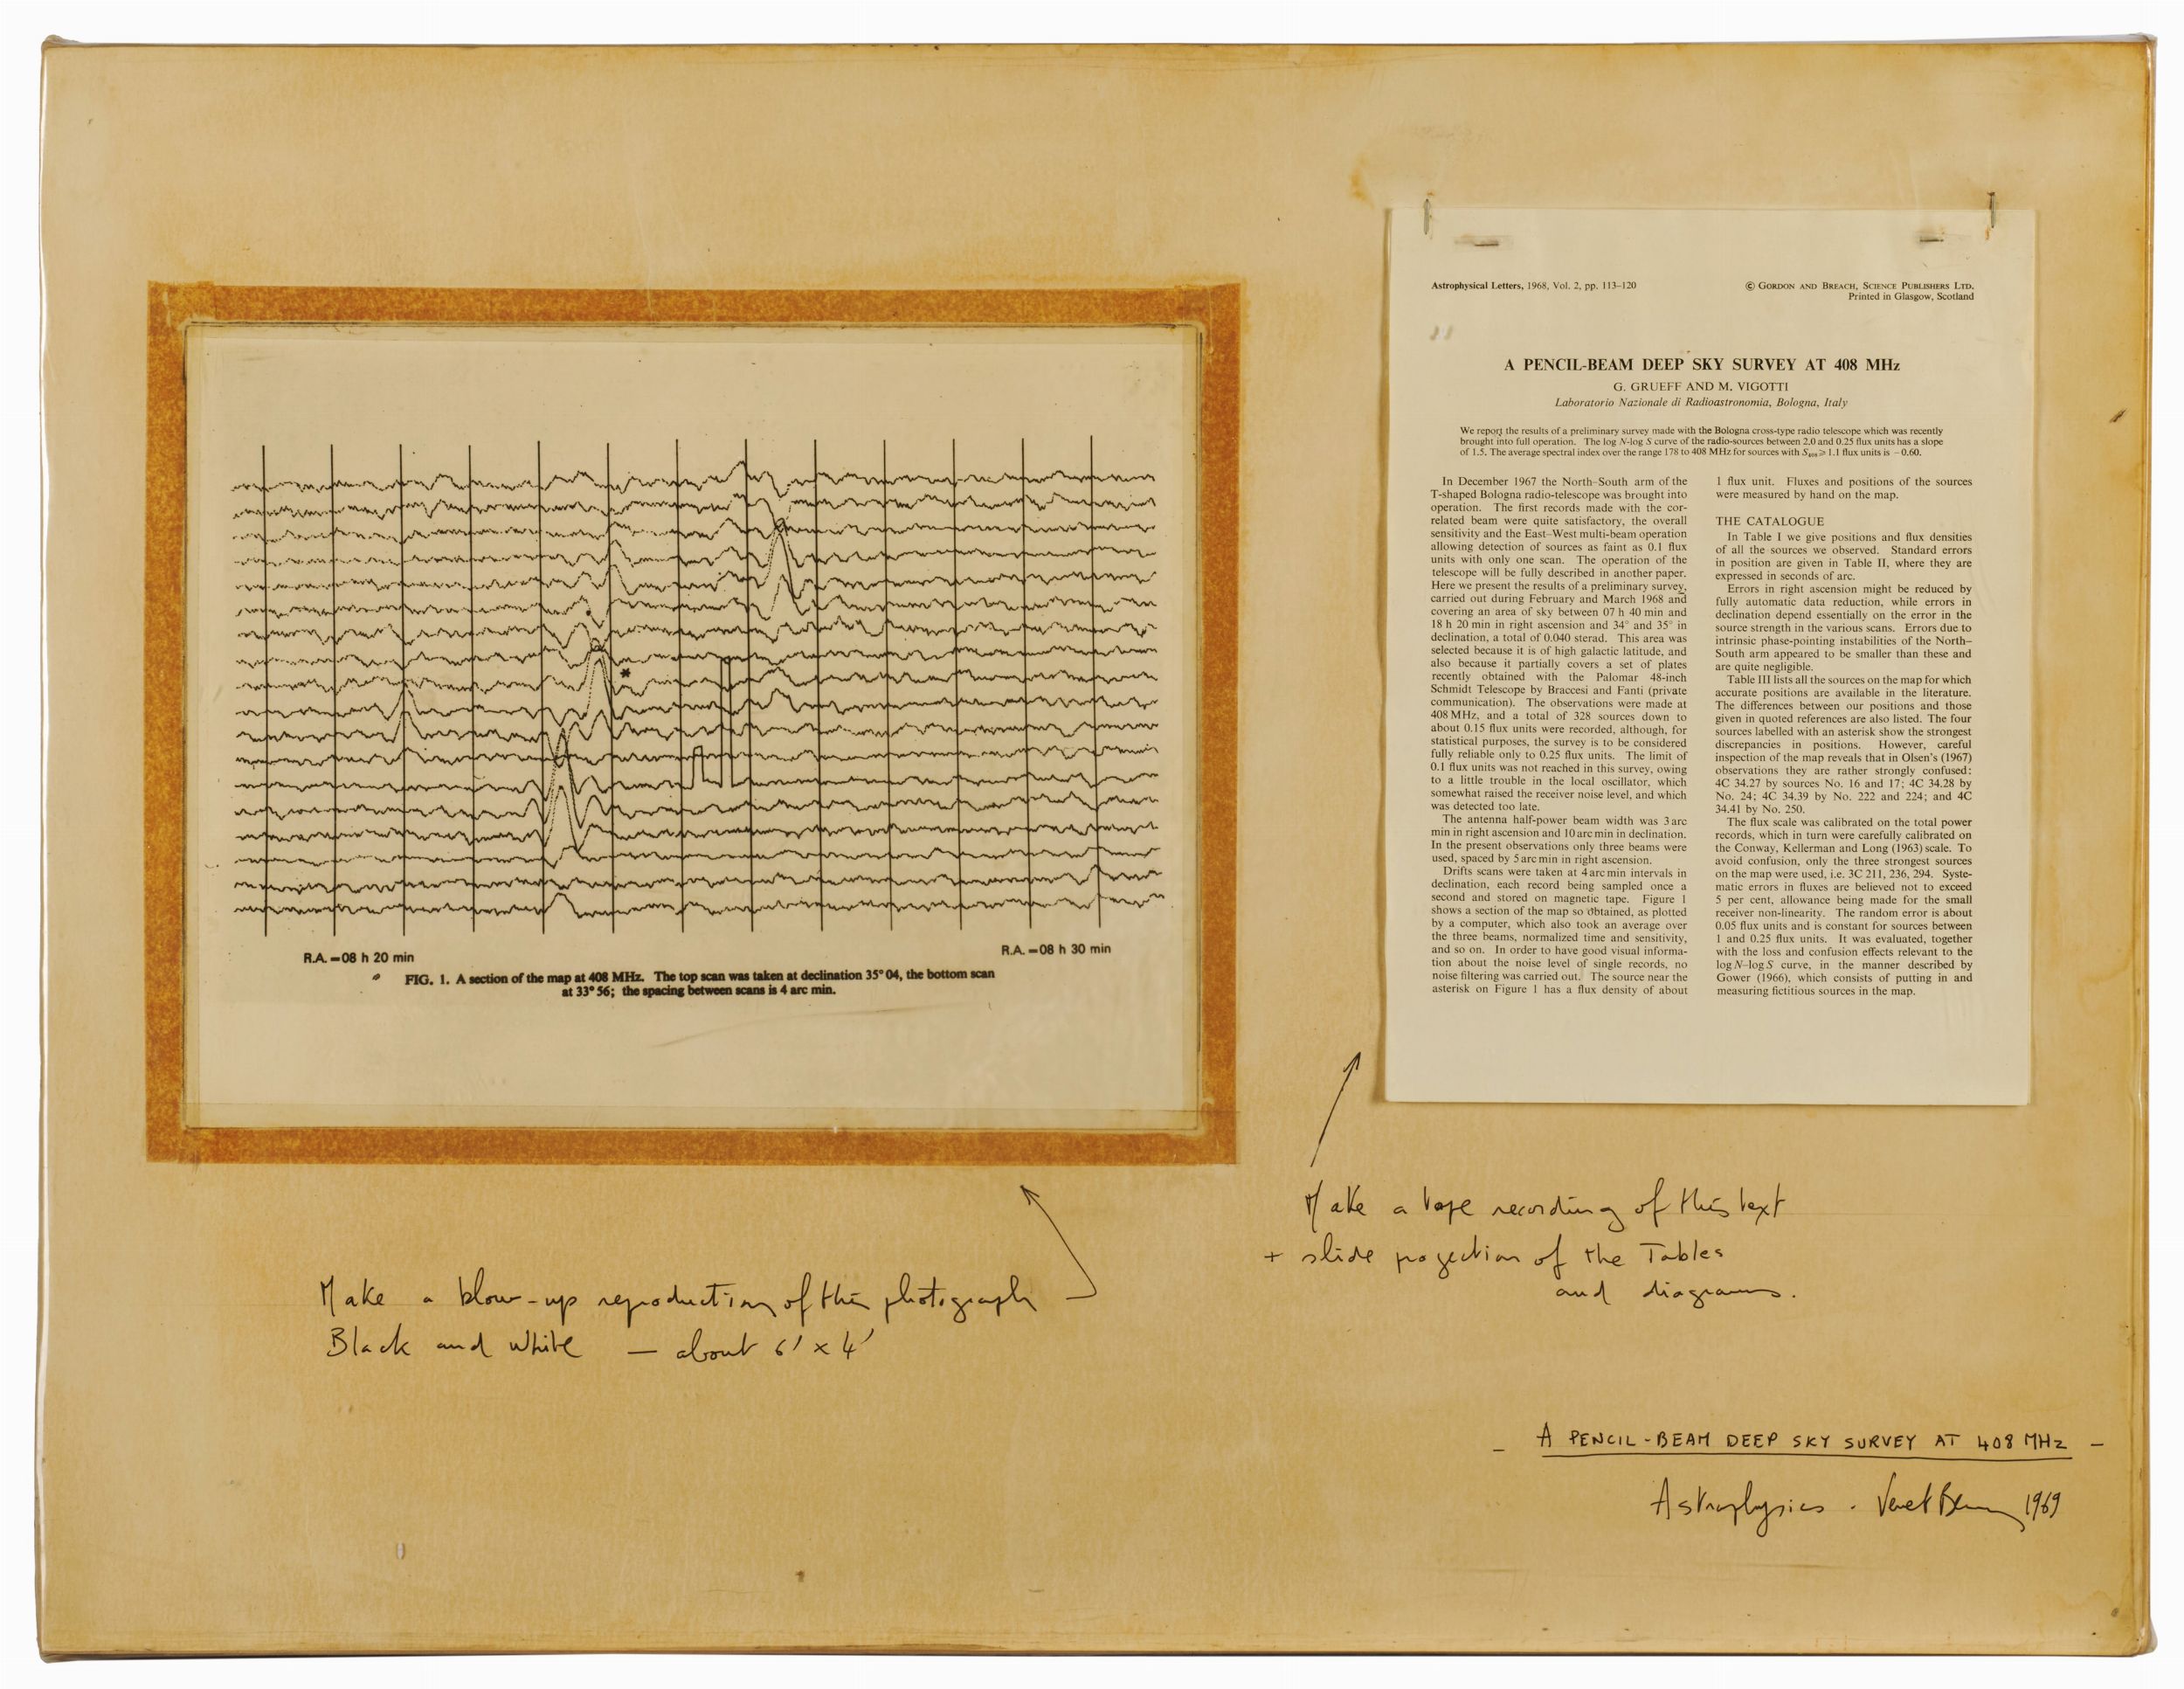 R.A. = 08 h 20 min
R.A. = 08 h 30 min
FIG. 1. A section of the map at 408 MHz. The top scan was taken at declination 35° 04, the bottom scan
at 33° 56; the spacing between scans is 4 arc min.
Make a blow-up reproduction of this photograph
Black and white — about 6' x 4'
Astrophysical Letters, 1968, Vol. 2, pp. 113–120
© GORDON AND BREACH, SCIENCE PUBLISHERS LTD.
Printed in Glasgow, Scotland
A PENCIL-BEAM DEEP SKY SURVEY AT 408 MHz
G. GRUEFF AND M. VIGOTTI
Laboratorio Nazionale di Radioastronomia, Bologna, Italy
We report the results of a preliminary survey made with the Bologna cross-type radio telescope which was recently
brought into full operation. The log N-log S curve of the radio-sources between 2.0 and 0.25 flux units has a slope
of 1.5. The average spectral index over the range 178 to 408 MHz for sources with S₄₀₈ ⩾ 1.1 flux units is −0.60.
In December 1967 the North–South arm of the
T-shaped Bologna radio-telescope was brought into
operation. The first records made with the cor-
related beam were quite satisfactory, the overall
sensitivity and the East–West multi-beam operation
allowing detection of sources as faint as 0.1 flux
units with only one scan. The operation of the
telescope will be fully described in another paper.
Here we present the results of a preliminary survey,
carried out during February and March 1968 and
covering an area of sky between 07 h 40 min and
18 h 20 min in right ascension and 34° and 35° in
declination, a total of 0.040 sterad. This area was
selected because it is of high galactic latitude, and
also because it partially covers a set of plates
recently obtained with the Palomar 48-inch
Schmidt Telescope by Braccesi and Fanti (private
communication). The observations were made at
408 MHz, and a total of 328 sources down to
about 0.15 flux units were recorded, although, for
statistical purposes, the survey is to be considered
fully reliable only to 0.25 flux units. The limit of
0.1 flux units was not reached in this survey, owing
to a little trouble in the local oscillator, which
somewhat raised the receiver noise level, and which
was detected too late.
The antenna half-power beam width was 3 arc
min in right ascension and 10 arc min in declination.
In the present observations only three beams were
used, spaced by 5 arc min in right ascension.
Drifts scans were taken at 4 arc min intervals in
declination, each record being sampled once a
second and stored on magnetic tape. Figure 1
shows a section of the map so obtained, as plotted
by a computer, which also took an average over
the three beams, normalized time and sensitivity,
and so on. In order to have good visual informa-
tion about the noise level of single records, no
noise filtering was carried out. The source near the
asterisk on Figure 1 has a flux density of about
1 flux unit. Fluxes and positions of the sources
were measured by hand on the map.
THE CATALOGUE
In Table I we give positions and flux densities
of all the sources we observed. Standard errors
in position are given in Table II, where they are
expressed in seconds of arc.
Errors in right ascension might be reduced by
fully automatic data reduction, while errors in
declination depend essentially on the error in the
source strength in the various scans. Errors due to
intrinsic phase-pointing instabilities of the North–
South arm appeared to be smaller than these and
are quite negligible.
Table III lists all the sources on the map for which
accurate positions are available in the literature.
The differences between our positions and those
given in quoted references are also listed. The four
sources labelled with an asterisk show the strongest
discrepancies in positions. However, careful
inspection of the map reveals that in Olsen's (1967)
observations they are rather strongly confused:
4C 34.27 by sources No. 16 and 17; 4C 34.28 by
No. 24; 4C 34.39 by No. 222 and 224; and 4C
34.41 by No. 250.
The flux scale was calibrated on the total power
records, which in turn were carefully calibrated on
the Conway, Kellerman and Long (1963) scale. To
avoid confusion, only the three strongest sources
on the map were used, i.e. 3C 211, 236, 294. Syste-
matic errors in fluxes are believed not to exceed
5 per cent, allowance being made for the small
receiver non-linearity. The random error is about
0.05 flux units and is constant for sources between
1 and 0.25 flux units. It was evaluated, together
with the loss and confusion effects relevant to the
log N–log S curve, in the manner described by
Gower (1966), which consists of putting in and
measuring fictitious sources in the map.
Make a tape recording of this text
+ slide projection of the Tables
and diagrams.
– A PENCIL-BEAM DEEP SKY SURVEY AT 408 MHz –
Astrophysics . Venet Bernar 1969